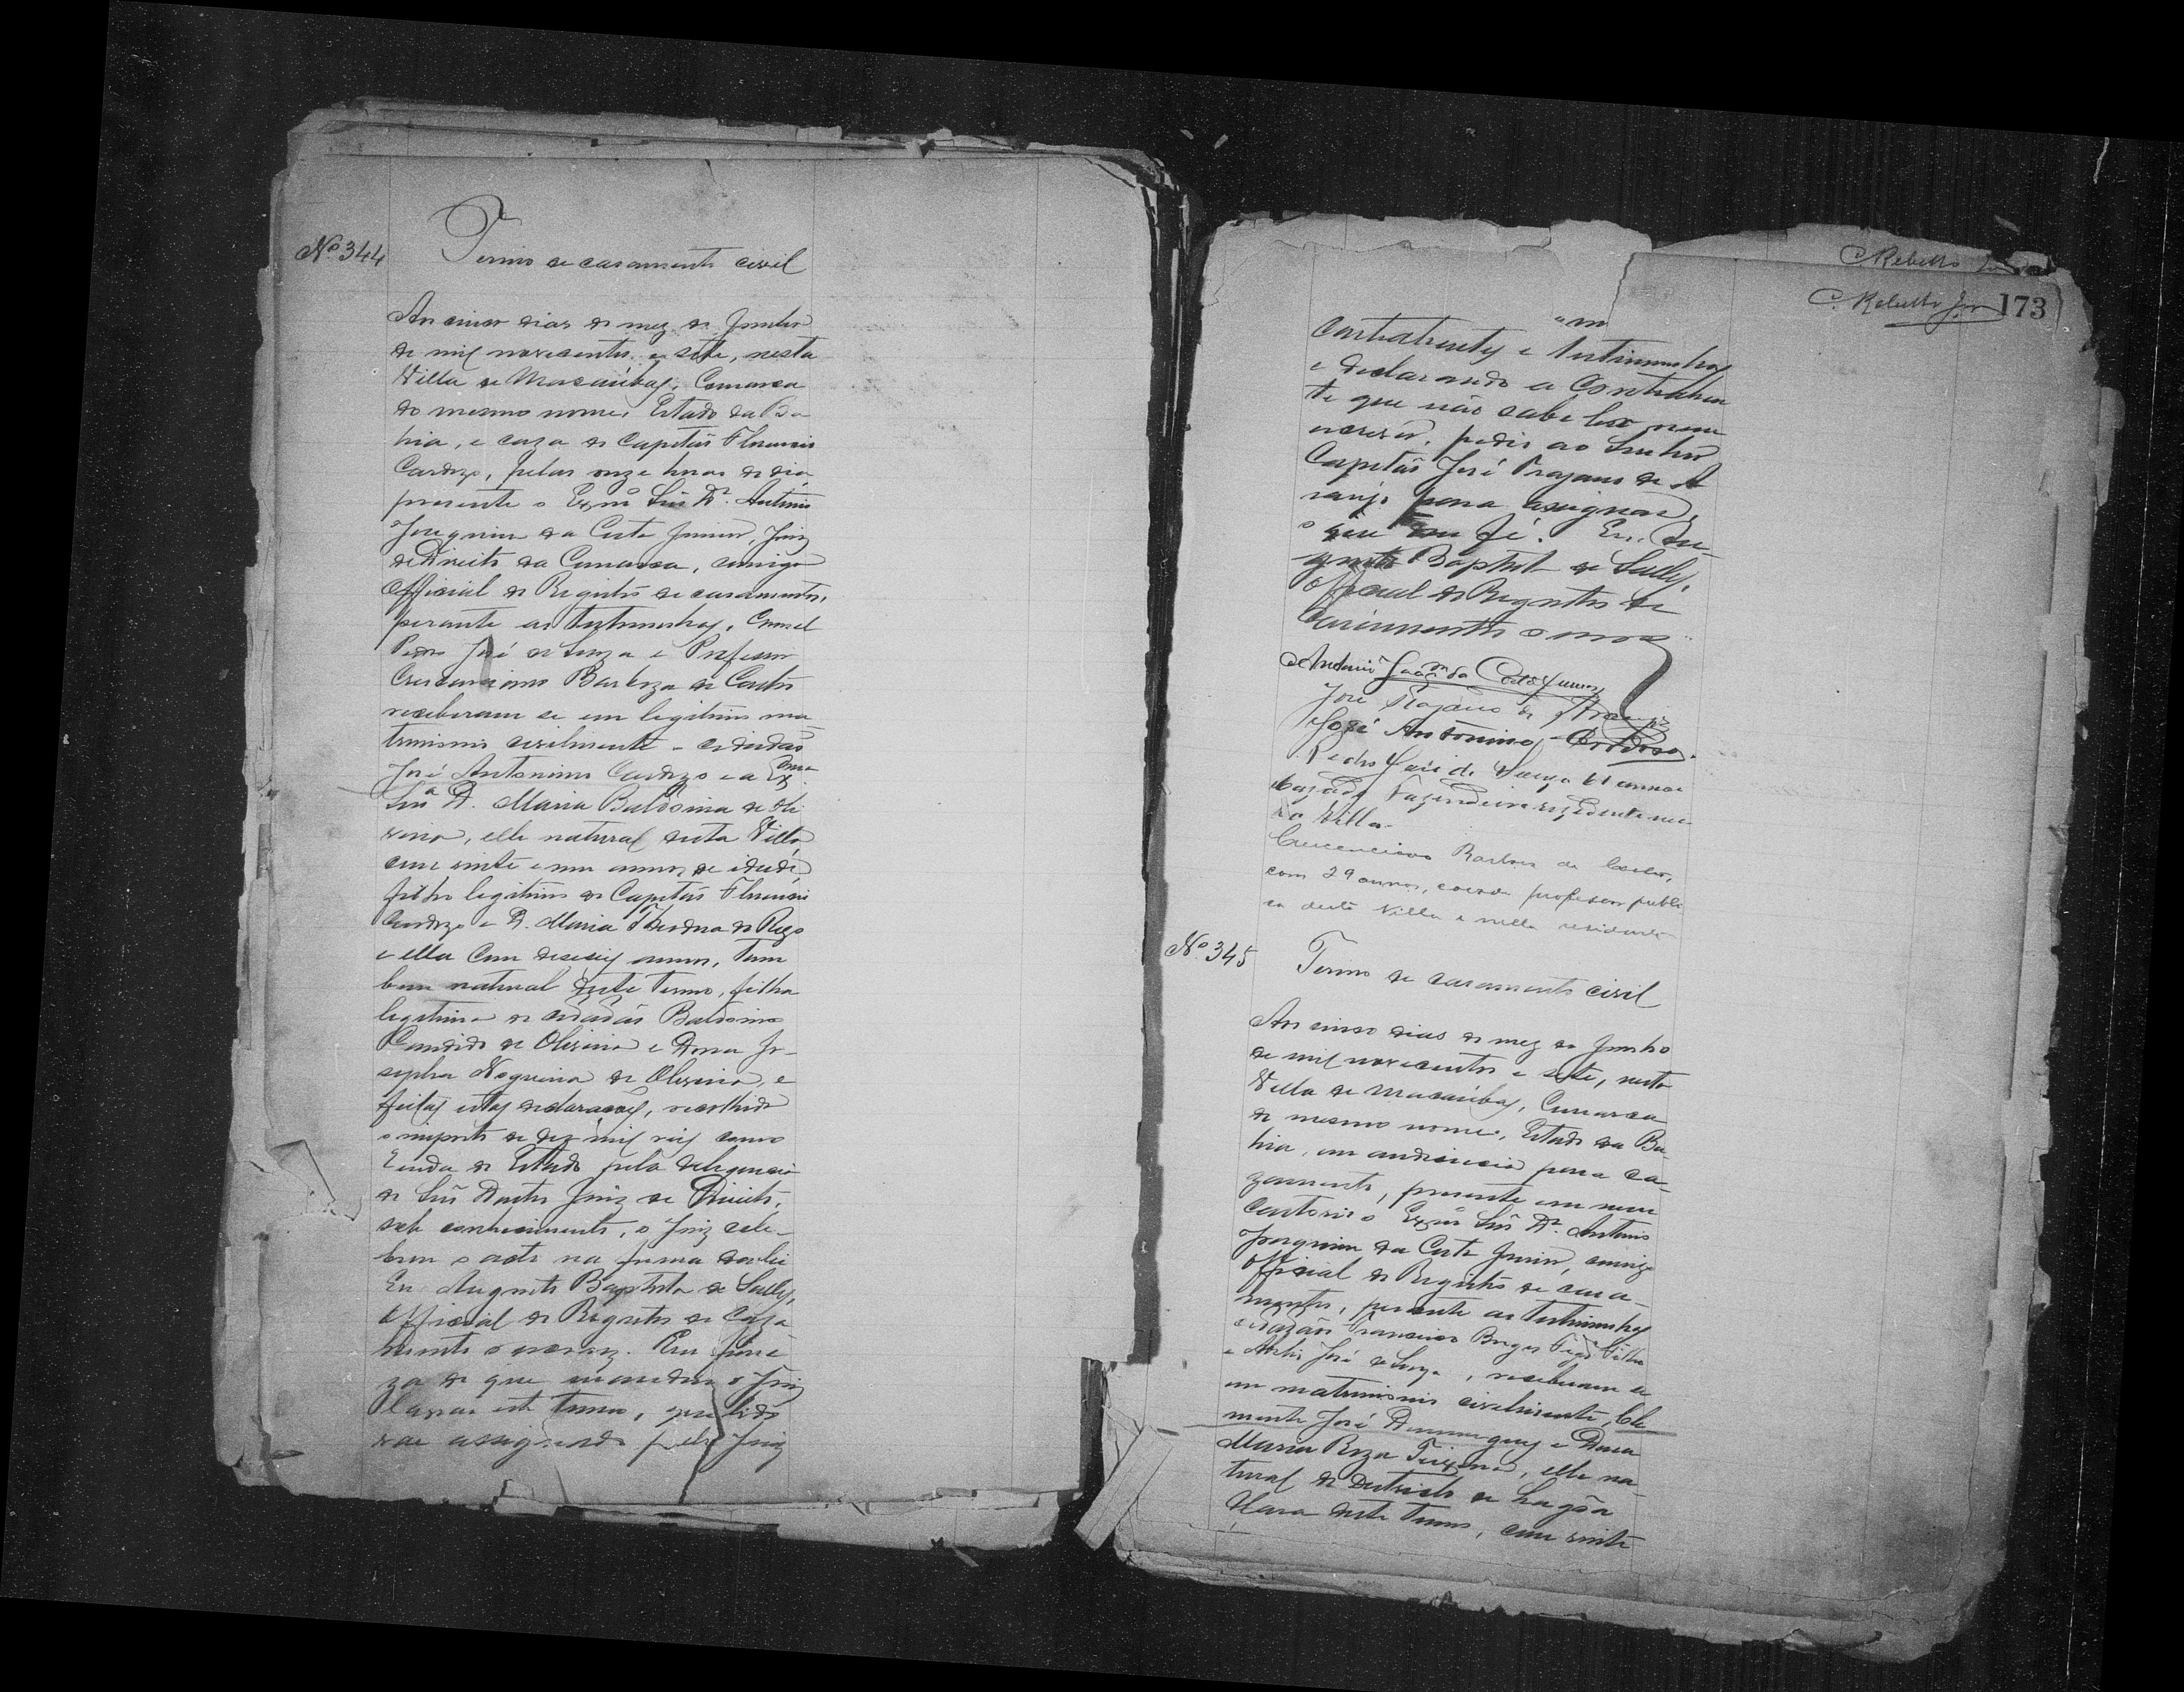 Nº 344
Termo de casamento civil
Aos cinco dias do mez de Junho
de mil novecentos e sete, nesta
Villa de Macaúbas, Comarca
do mesmo nome, Estado da Ba-
hia, e caza do Capitão Florencio
Cardozo, pelas onze horas do dia
presente o Exmº Snr Dr. Antonio
Joaquim da Costa Junior, Juiz
de Direito da Comarca, comigo
Official do Registro de casamentos,
perante as testimunhas, Coronel
Pedro José de Souza e Professor
Crescenciano Barboza de Castro
receberam se em legitimo ma-
trimonio civilmente o cidadão
José Antonino Cardozo e a Exma
Snrª D. Maria Baldoina de Oli
veira, elle natural desta Villa
com vinte e um annos de idade
filho legitimo do Capitão Florencio
Cardozo e D. Maria Theodora do Rego
e ella com deseseis annos, tam
bem natural deste Termo, filha
legitima do cidadão Baldoino
Candido de Oliveira e Dona Jo-
sepha Nogueira de Oliveira, e
feitas estas declarações, recolhido
o importe de dez mil reis como
renda do Estado pela deligencia
do Snr Doutor Juiz de Direito,
sob conhecimento, o Juiz cele-
brou o acto na forma da lei
Eu Augusto Baptista de Sally,
Official do Registro de Caza-
mento o escrevy. Em firme
za do que mandou o Juiz
lavrar este termo, que lido
vae assignado pelo Juiz
C. Rebello Junior
C. Rebello Jor 173
contrahentes e testimunhas
e declarando a Contrahen
te que não sabe ler nem
escrever, pedio ao Senhor
Capitão José Trajano de A
raujo para assignar,
o que dou fé. Eu, Au-
gusto Baptista de Sally,
Official do Registro de
Casamentos o escrevy
Antonio Joaqm da Costa Junior
José Trajano de Araujo
José Antonino Cardozo.
Pedro José de Souza 61 annos
cazado Fazendeiro rezidente nes
ta Villa.
Crescenciano Barboza de Castro,
com 29 annos, casado professor publi
co desta Villa e nella residente
Nº 345
Termo de casamento civil
Aos cinco dias do mez de Junho
de mil novecentos e sete, nesta
Villa de Macaúbas, Comarca
do mesmo nome, Estado da Ba-
hia, em audiencia para ca-
zamento, presente em meu
Cartorio o Exmº Snr Dr. Antonio
Joaquim da Costa Junior, comigo
Official do Registro de casa-
mentos, perante as testimunhas
cidadãos Francisco Borges Filho
e José de Souza, receberam se
em matrimonio civilmente, Cle
mente José Domingues e Dona
Maria Roza Teixeira, elle na-
tural do Districto de Lagôa
Clara deste Termo, com vinte